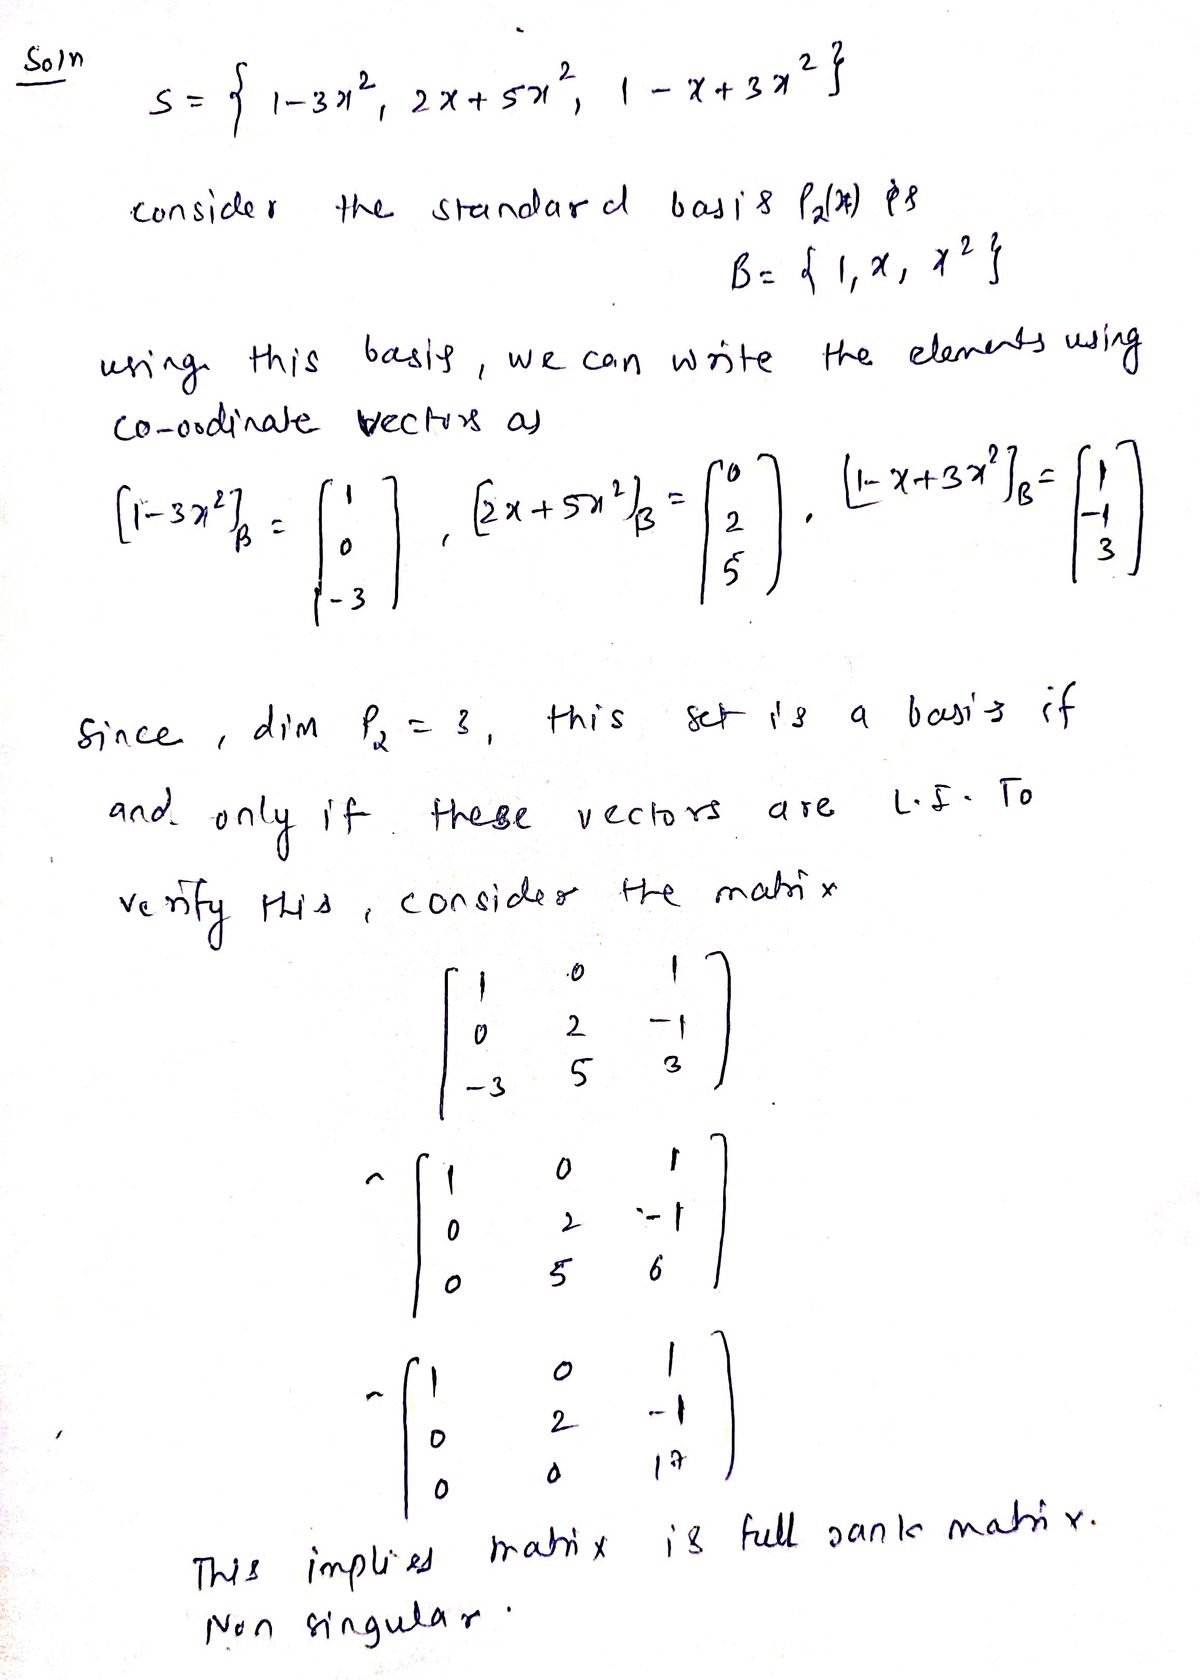 Soln
S = { 1-3x², 2x + 5x², 1 - x + 3x² }
consider the standard basis P₂(x) is
B = { 1, x, x² }
using this basis, we can write the elements using
co-oodinate vectors as
[1-3x²]_B = [1 0 -3], [2x + 5x²]_B = [0 2 5], [1- x+3x²]_B = [1 -1 3]
Since, dim P₂ = 3, this set is a basis if
and only if these vectors are L.I. To
verify this, consider the matrix
[ 1 0 1
0 2 -1
-3 5 3 ]
~ [ 1 0 1
0 2 -1
0 5 6 ]
~ [ 1 0 1
0 2 -1
0 0 17 ]
This implies matrix is full rank matrix.
Non singular.